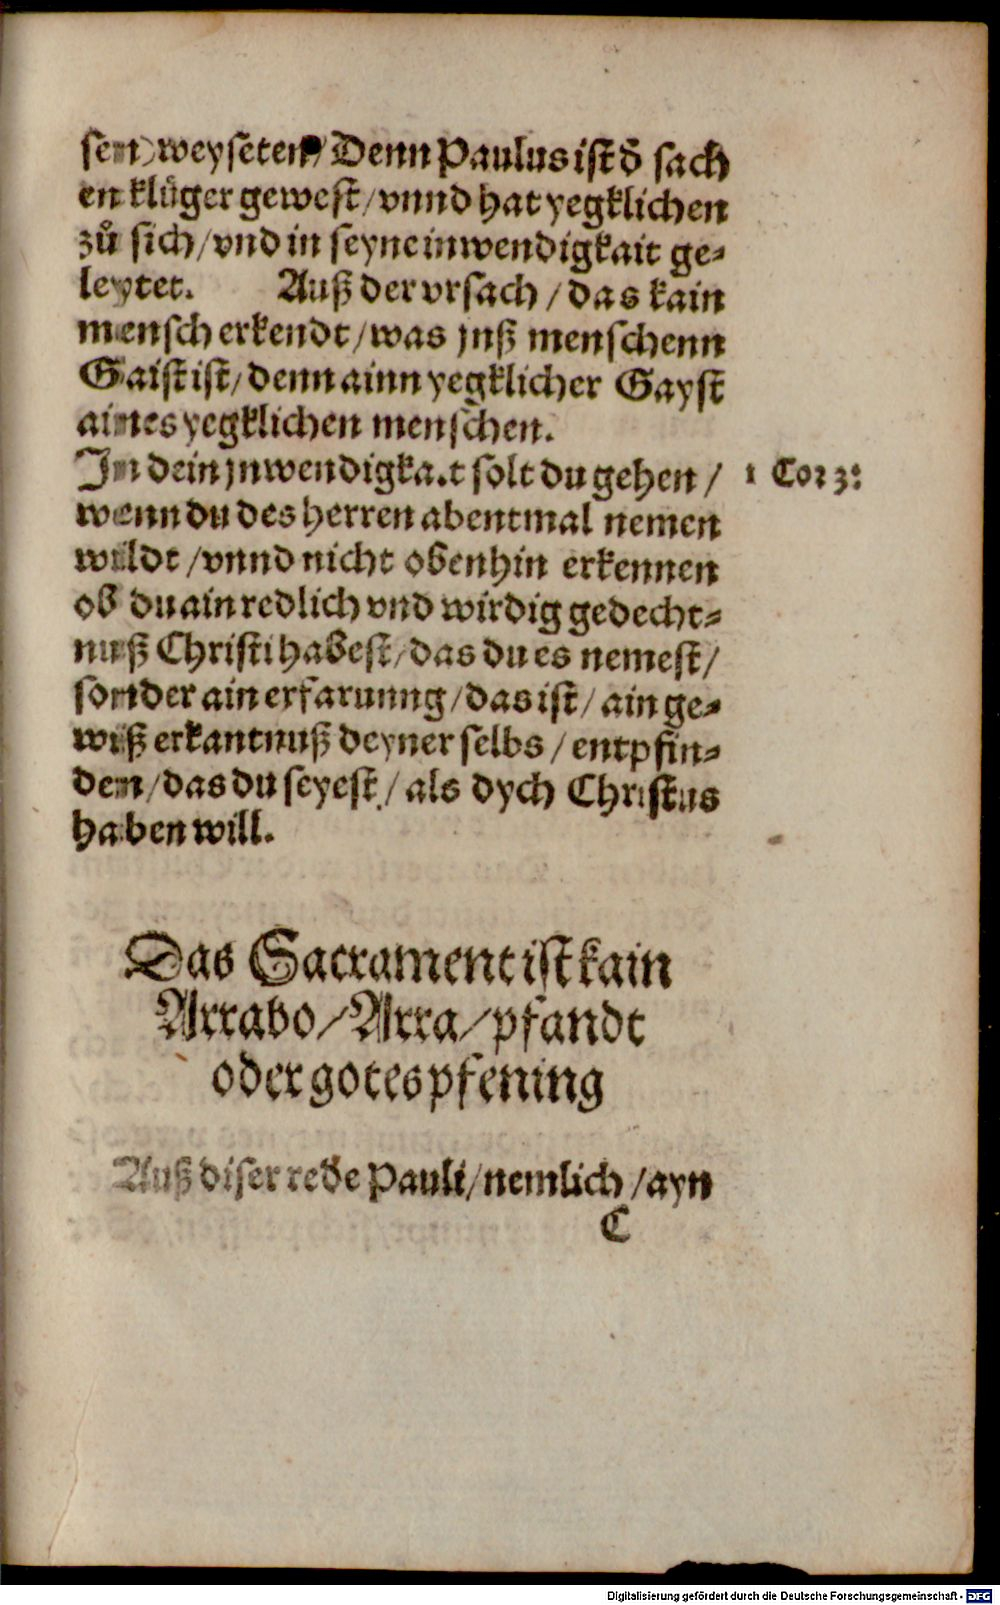 sen weyseten / Denn Paulus ist d̄ sach
en klüger gewest / vnnd hat yegklichen
zů sich / vnd in seyne inwendigkait ge⸗
leytet. Auß der vrsach / das kain
mensch erkendt / was jnß menschenn
Gaist ist / denn ainn yegklicher Gayst
aines yegklichen menschen.
In dein jnwendigkait solt du gehen / 1 Cor 3:
wenn du des herren abentmal nemen
wildt / vnnd nicht obenhin erkennen
ob du ain redlich vnd wirdig gedecht⸗
nuß Christi habest / das du es nemest /
sonder ain erfarunng / das ist / ain ge⸗
wiß erkantnuß deyner selbs / entpfin⸗
den / das du seyest / als dych Christus
haben will.
Das Sacrament ist kain
Arrabo / Arra / pfandt
oder gotespfening
Auß diser rede Pauli / nemlich / ayn
C
Digitalisierung gefördert durch die Deutsche Forschungsgemeinschaft - DFG